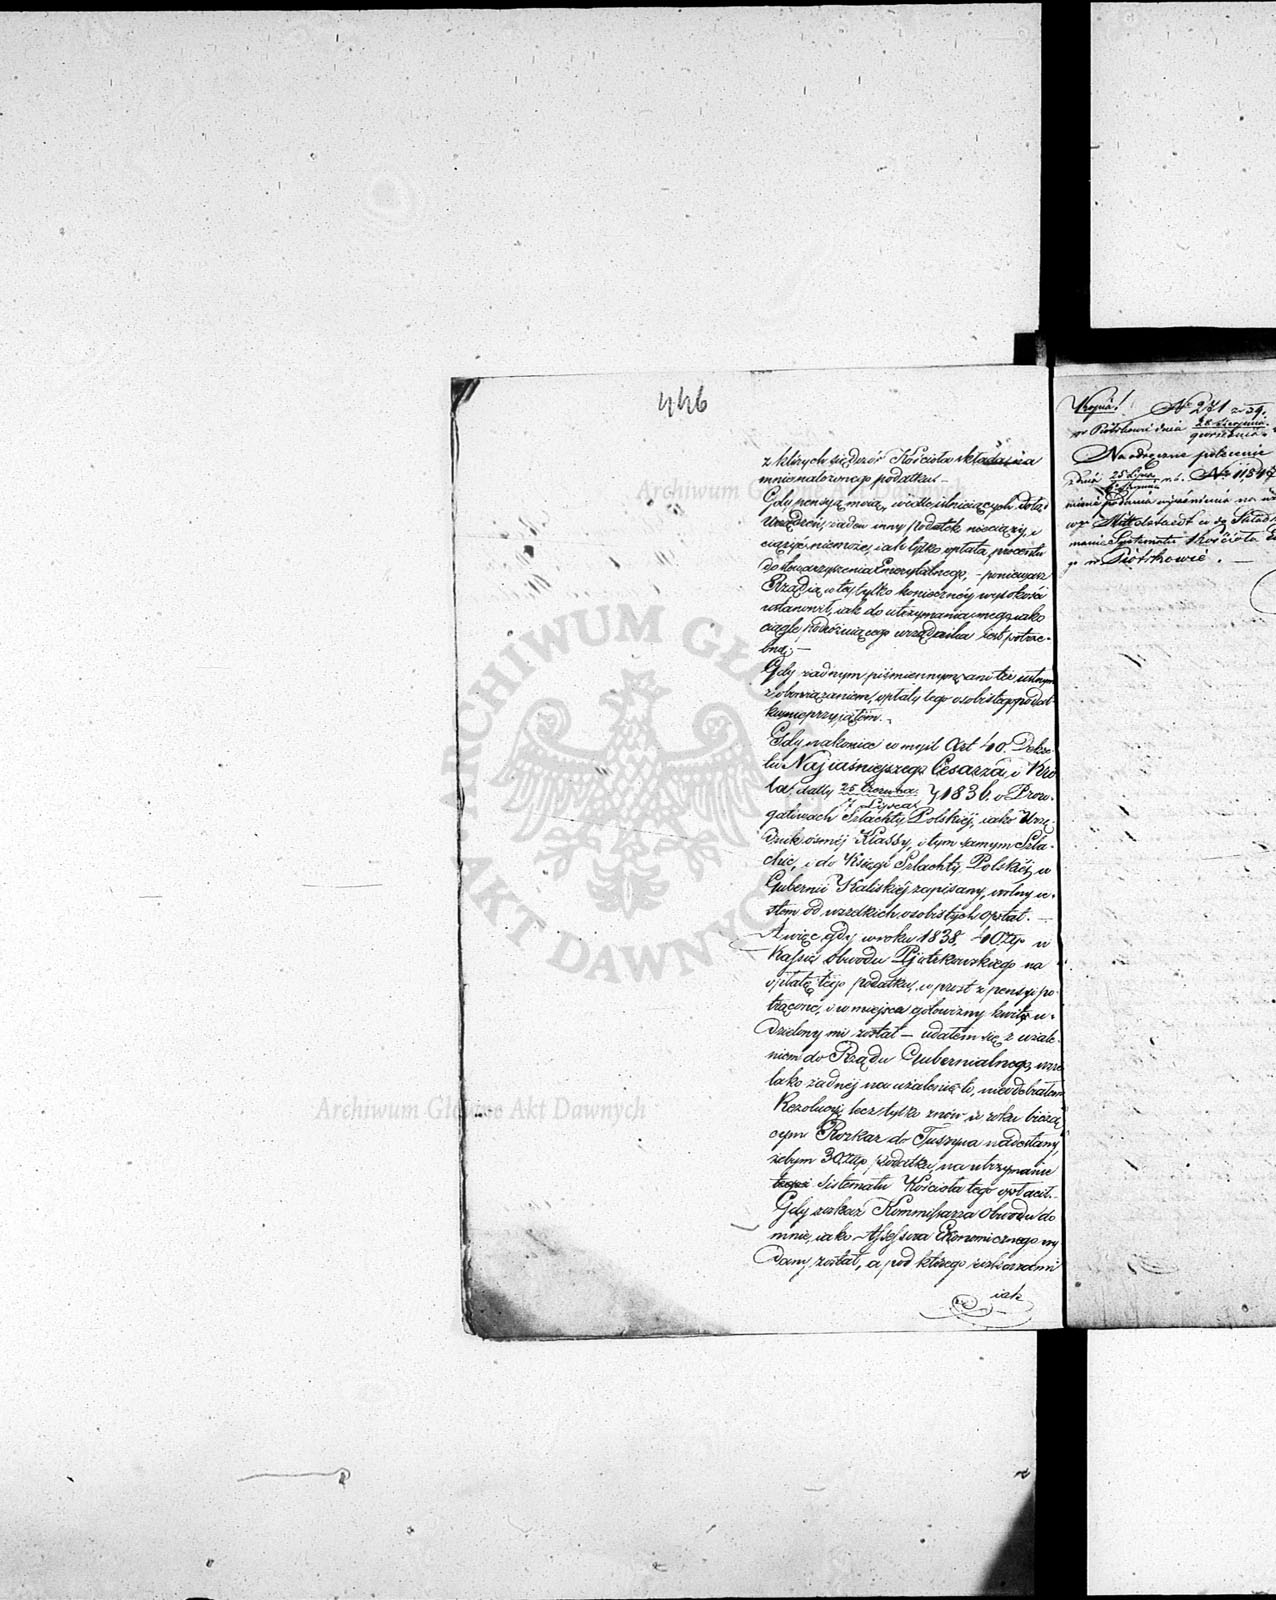 446
z których się dozór Kościoła składa na
mnie nałożonego podatku. —
Gdy pensyą moią, wedle istnieiących dotąd
Urządzeń, żaden inny Podatek nieciąży, i
ciążyć niemoże, iak tylko opłata procentu
do stowarzyszenia Emerytalnego, — ponieważ
Rząd ią w tey tylko konieczney wysokości
ustanowił, iak do utrzymania mego iako
ciągle podróżuiącego urzędnika iest potrze-
bną; —
Gdy żadnym piśmiennym, ani też ustnym
zobowiązaniem, opłaty tego osobistego podat-
ku nie przyiąłem. —
Gdy nakoniec w myśl Art 40. Dekre-
tu Najiaśniejszego Cesarza i Kró
la, datty 25 Czerwca / 7 Lipca 1836. o Prero-
gatiwach Szlachty Polskiéj, iako Urzę-
dnik ósméj Klassy, i tym samym Szla-
chcic, i do Księgi Szlachty Polskiéj w
Gubernii Kaliskiéj zapisany, wolny ie-
stem od wszelkich osobistych opłat. —
A więc gdy w roku 1838, 40 Złp w
Kassie Obwodu Piotrkowskiego na
opłatę tego podatku, wprost z pensyi po-
trącone, i w miejsca gotowizny kwit u-
dzielony mi został — udałem się z użale-
niem do Rządu Gubernialnego, wsze
lako żadnéj na użalenie to, nieodebrałem
Rezolucyi, lecz tylko znów w roku bieżą
cym Rozkaz do Tuszyna nadesłany,
żebym 30 Złp podatku, na utrzymanie
Sistematu Kościoła tego opłacił. —
Gdy rozkaz Kommissarza Obwodu do
mnie, iako Assessora Ekonomicznego wy
dany został, a pod którego rozkazami
iak
Kopia! Nr 271 z 39.
w Piotrkowie dnia 28 Sierpnia
Na odręczne polecenie
z dnia 25 Lipca r. b. Nr 11,547
mienie podania wyjaśnienia na
wż Mittelstaedt w do Składki
manie Systematu Kościoła E
go w Piotrkowie. —
ARCHIWUM GŁÓWNE AKT DAWNYCH
Archiwum Główne Akt Dawnych
Archiwum Główne Akt Dawnych